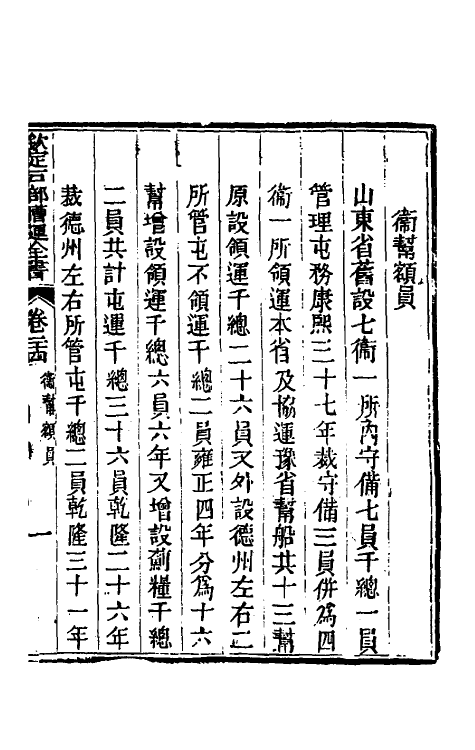 衞幫額員
山東省舊設七衞一所內守備七員千總一員
管理屯務康熙三十七年裁守備三員併為四
衞一所領運本省及協運豫省幫船共十三幫
原設領運千總二十六員又外設德州左右二
所管屯不領運千總二員雍正四年分為十六
幫增設領運千總六員六年又增設薊糧千總
二員共計屯運千總三十六員乾隆二十六年
裁德州左右所管屯千總二員乾隆三十一年
欽定戶部漕運全書 卷 衞幫額員 一